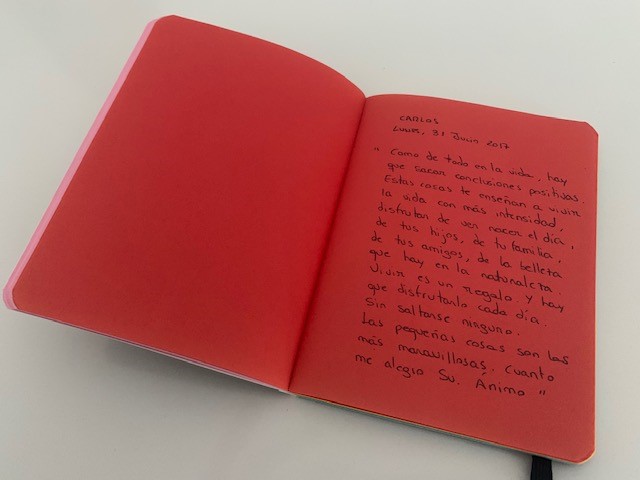 CARLOS
LUNES, 31 Junio 2017
" Como de todo en la vida, hay
que sacar conclusiones positivas.
Estas cosas te enseñan a vivir
la vida con más intensidad,
disfrutar de ver nacer el día,
de tus hijos, de tu familia,
de tus amigos, de la belleza
que hay en la naturaleza.
Vivir es un regalo y hay
que disfrutarlo cada día.
Sin saltarse ninguno.
Las pequeñas cosas son las
más maravillosas. Cuanto
me alegro Su. Ánimo "